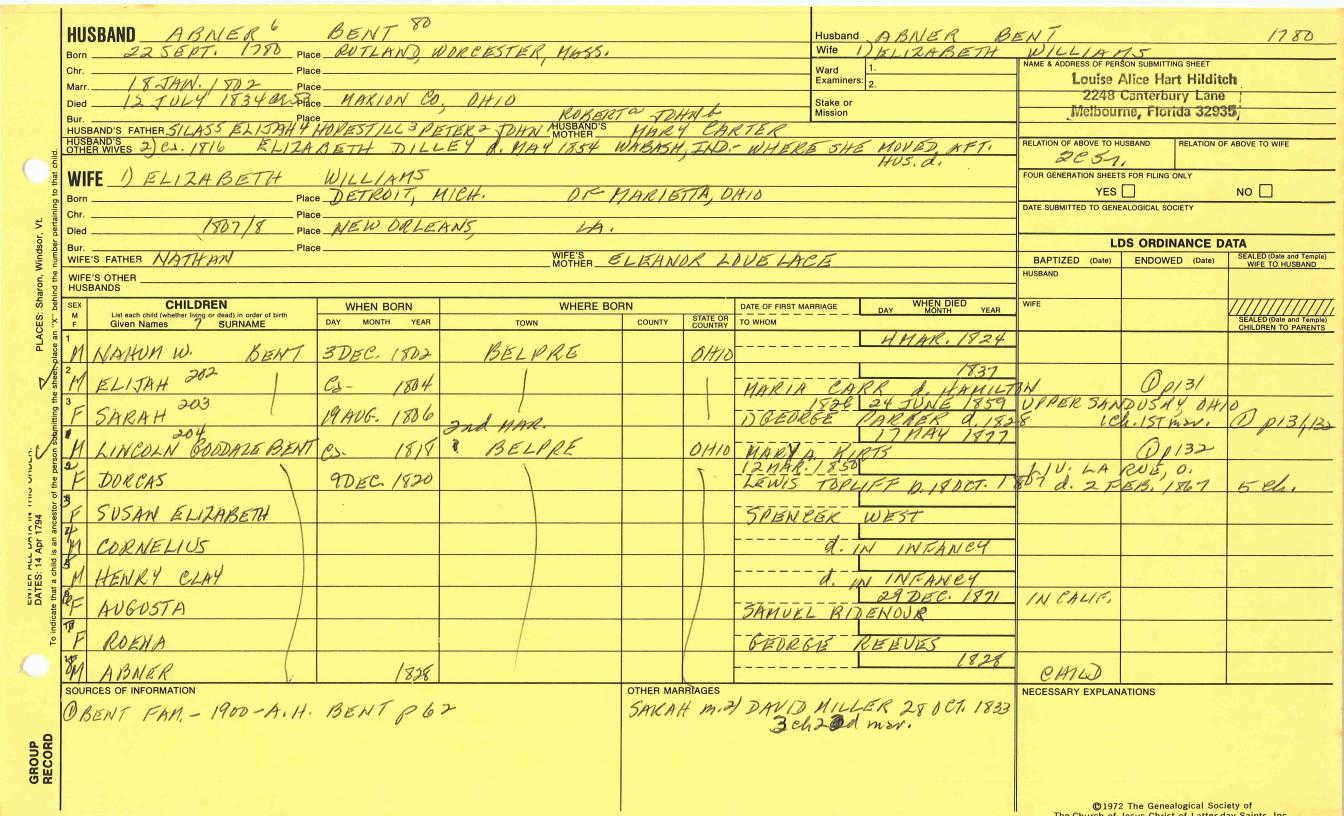 HUSBAND ABNER 6 BENT 80
Born 22 SEPT. 1780 Place RUTLAND, WORCESTER, MASS.
Chr. Place
Marr. 18 JAN. 1802 Place
Died 12 JULY 1834 Place MARION CO, OHIO
Bur. Place
HUSBAND'S FATHER SILAS5 ELIJAH4 HOPESTILL3 PETER2 JOHN1 ROBERTa JOHNb HUSBAND'S MOTHER MARY CARTER
HUSBAND'S OTHER WIVES 2) Ca. 1816 ELIZABETH DILLEY d. MAY 1854 WABASH, IND. - WHERE SHE MOVED, AFT. HUS. d.
Husband ABNER BENT 1780
Wife 1) ELIZABETH WILLIAMS
Ward Examiners: 1.
2.
Stake or Mission
NAME & ADDRESS OF PERSON SUBMITTING SHEET
Louise Alice Hart Hilditch
2248 Canterbury Lane
Melbourne, Florida 32935
RELATION OF ABOVE TO HUSBAND RELATION OF ABOVE TO WIFE
2C5r.
FOUR GENERATION SHEETS FOR FILING ONLY
YES NO
DATE SUBMITTED TO GENEALOGICAL SOCIETY
WIFE 1) ELIZABETH WILLIAMS
Born Place DETROIT, MICH. OF MARIETTA, OHIO
Chr. Place
Died 1807/8 Place NEW ORLEANS, LA.
Bur. Place
WIFE'S FATHER NATHAN WIFE'S MOTHER ELEANOR LOVELACE
WIFE'S OTHER HUSBANDS
LDS ORDINANCE DATA
BAPTIZED (Date) ENDOWED (Date) SEALED (Date and Temple) WIFE TO HUSBAND
HUSBAND
WIFE
SEALED (Date and Temple) CHILDREN TO PARENTS
SEX M F CHILDREN List each child (whether living or dead) in order of birth Given Names 7 SURNAME
WHEN BORN DAY MONTH YEAR
WHERE BORN TOWN COUNTY STATE OR COUNTRY
DATE OF FIRST MARRIAGE TO WHOM
WHEN DIED DAY MONTH YEAR
1 M NAHUM W. BENT 3 DEC. 1802 BELPRE OHIO 4 MAR. 1824
2 M ELIJAH 202 Ca- 1804 MARIA CARR d. HAMILTON 1837 ① p131
3 F SARAH 203 19 AUG. 1806 1826 24 JUNE 1859 UPPER SANDUSKY, OHIO
1) GEORGE PARKER d. 1828 1ch. 1ST mar. ① p131/132
2nd MAR.
1 M LINCOLN GOODALE BENT 204 Ca- 1818 BELPRE OHIO MARY A. KIRTS 17 MAY 1877 ① p132
2 F DORCAS 9 DEC. 1820 12 MAR. 1850 LIV. LA RUE, O.
LEWIS TOPLIFF b. 18 OCT. 1807 d. 2 FEB. 1867 5 ch.
3 F SUSAN ELIZABETH SPENCER WEST
4 M CORNELIUS d. IN INFANCY
5 M HENRY CLAY d. IN INFANCY
6 F AUGUSTA SAMUEL RIDENOUR 29 DEC. 1871 IN CALIF.
7 F ROENA GEORGE REEVES
8 M ABNER 1828 1828 CHILD
SOURCES OF INFORMATION
① BENT FAM. - 1900 - A.H. BENT p 62
OTHER MARRIAGES
SARAH m. 2) DAVID MILLER 28 OCT. 1833
3 ch 2nd mar.
NECESSARY EXPLANATIONS
©1972 The Genealogical Society of
The Church of Jesus Christ of Latter-day Saints, Inc.
PLACES: Sharon, Windsor, Vt.
ENTER ALL DATA IN THIS ORDER:
DATES: 14 Apr 1794
To indicate that a child is an ancestor of the person submitting the sheet, place an "X" behind the number pertaining to that child.
GROUP RECORD